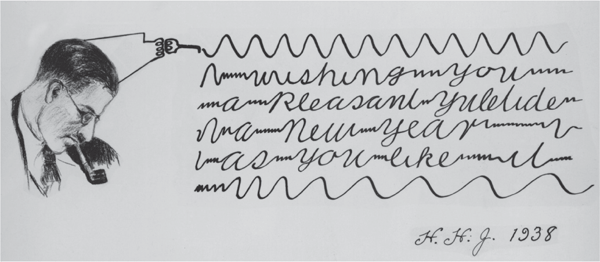 wishing you
a pleasant yuletide
a new year
as you like it
H. H. J. 1938